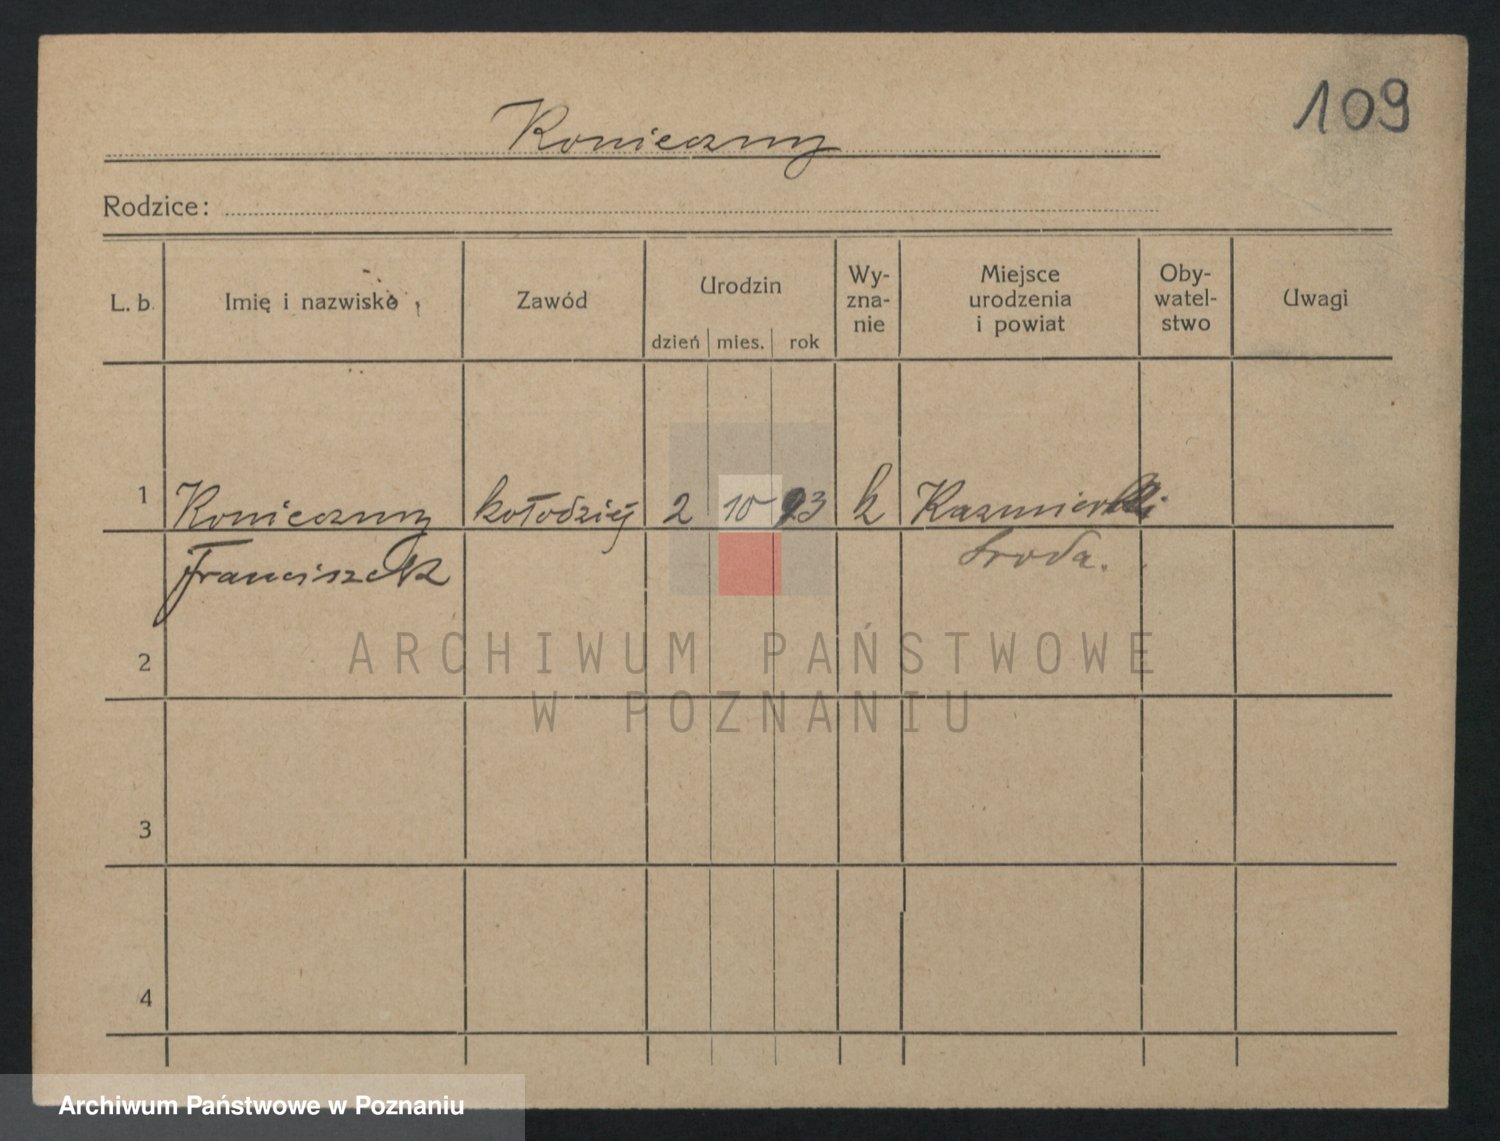 109
Konieczny
Rodzice:
L. b. Imię i nazwisko Zawód Urodzin Wy- zna- nie Miejsce urodzenia i powiat Oby- watel- stwo Uwagi
dzień mies. rok
1 Konieczny kołodziej 2 10 93 k
Franciszek Sroda.
2
3
4
ARCHIWUM PAŃSTWOWE
W POZNANIU
Archiwum Państwowe w Poznaniu